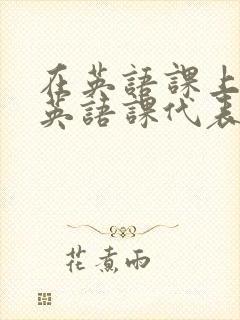 在英語課上
英語課代表
花煮雨